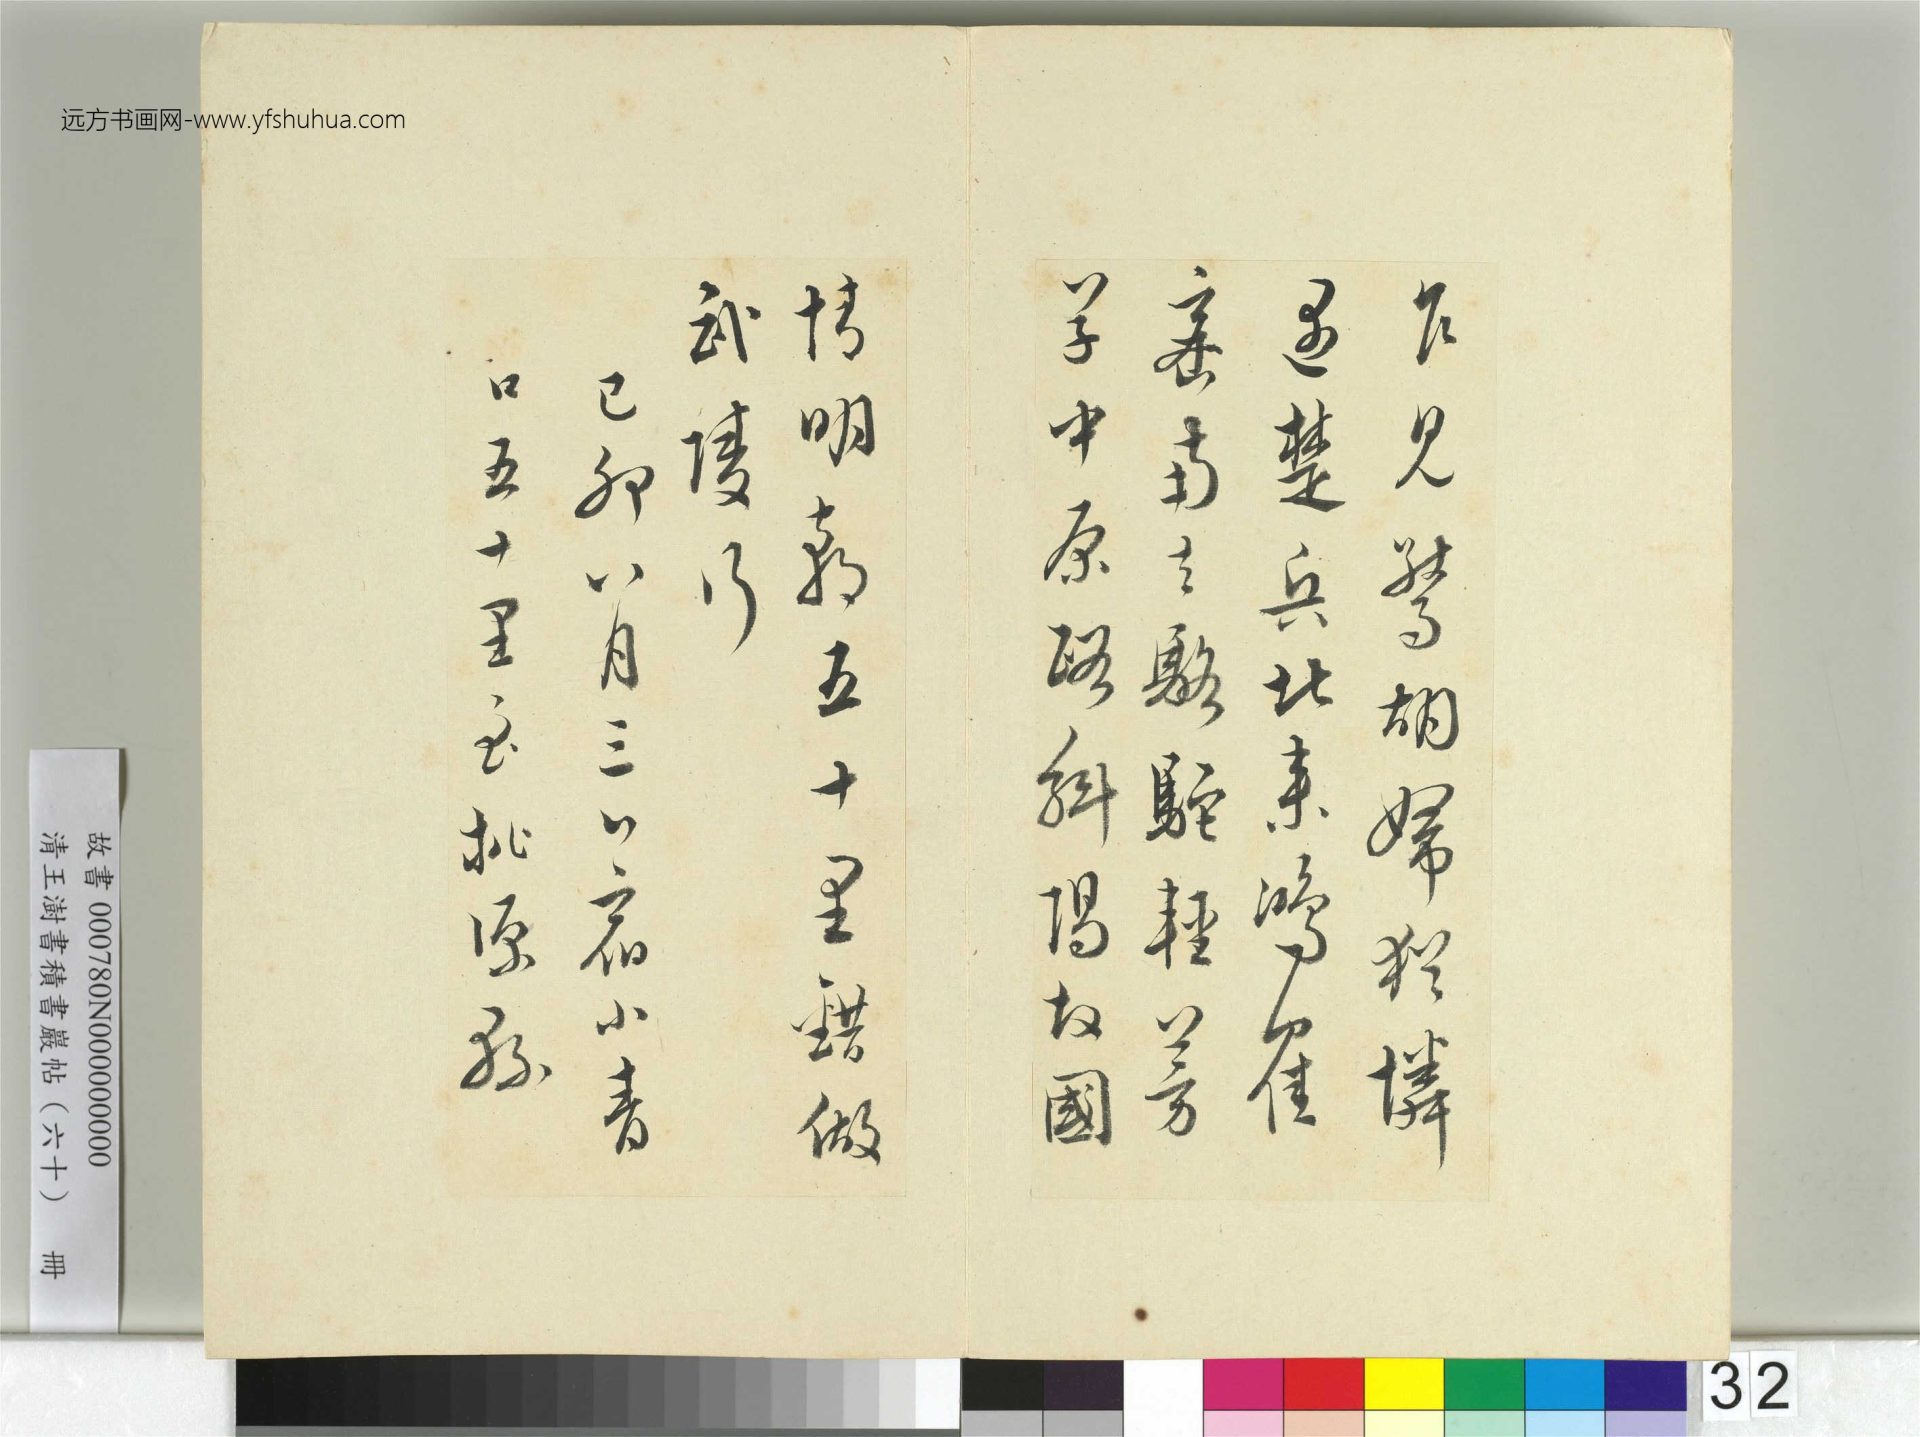 远方书画网-www.yfshuhua.com
乍見驚胡婦猶憐
遇楚兵北來鴻雁
密南去駱駝輕芳
草中原路斜陽故國
情明朝五十里錯做
武陵行
己卯八月三日宿小青
口五十里至桃源縣
故書 000780N000000000
清王澍書積書巖帖（六十） 冊
32